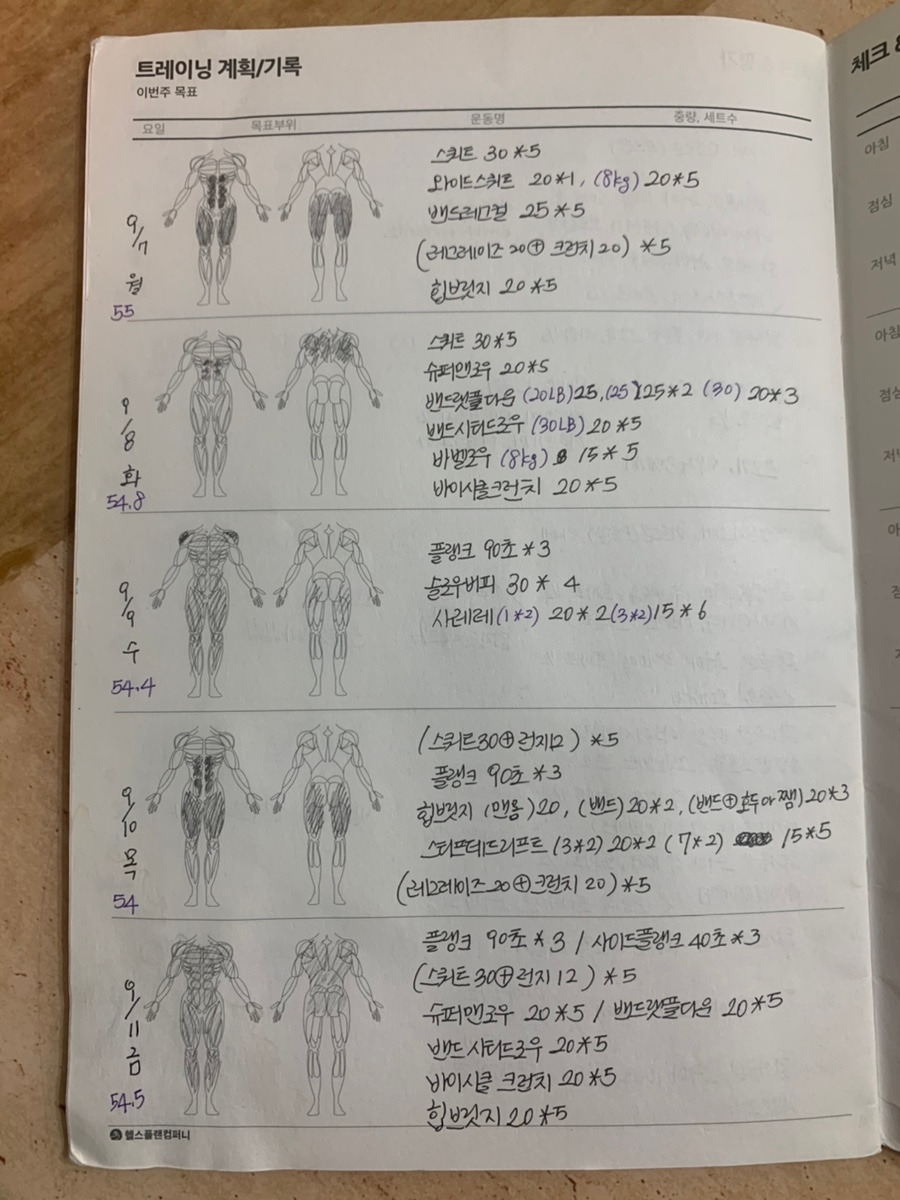 트레이닝 계획/기록
이번주 목표
요일 목표부위 운동명 중량, 세트수
9/7 월 55
스쿼트 30*5
와이드스쿼트 20*1, (8kg) 20*5
밴드레그컬 25*5
(레그레이즈 20⊕ 크런치 20) *5
힙브릿지 20*5
9/8 화 54.8
스쿼트 30*5
슈퍼맨로우 20*5
밴드랫풀다운 (20LB)25, (25)125*2 (30) 20*3
밴드시티드로우 (30LB) 20*5
바벨로우 (8kg) 15*5
바이시클크런치 20*5
9/9 수 54.4
플랭크 90초*3
슬로우버피 30* 4
사레레(1*2) 20*2(3*2)15*6
9/10 목 54
(스쿼트30⊕런지12) *5
플랭크 90초*3
힙브릿지 (맨몸)20, (밴드)20*2, (밴드⊕ )20*3
스티프데드리프트 (3*2) 20*2 (7*2) 15*5
(레그레이즈 20⊕크런치 20)*5
9/11 금 54.5
플랭크 90초*3 / 사이드플랭크 40초*3
(스쿼트 30⊕런지 12) *5
슈퍼맨로우 20*5 / 밴드랫풀다운 20*5
밴드 시티드로우 20*5
바이시클 크런치 20*5
힙브릿지 20*5
헬스플랜컴퍼니
체크 &
아침
점심
저녁
아침
점심
저녁